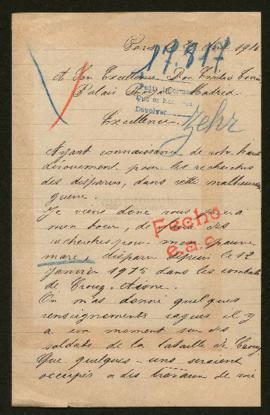 19.817
A Son Excellence Don Emilio
Palais Royal Madrid
Devolver
Excellence
Ayant connaissance de votre haut
dévouement pour les recherches
des disparus, dans cette malheureuse
guerre.
Je viens donc vous
mon tour, de faire des
recherches pour mon pauvre
mari, disparu depuis le 12
janvier 1915 dans les combats
de Crouy, Aisne.
Fecho
On m'as donné quelques
renseignements vagues il y
a un moment sur des
soldats de la bataille de Crouy
Que quelques-uns seraient
occupés a des travaux de